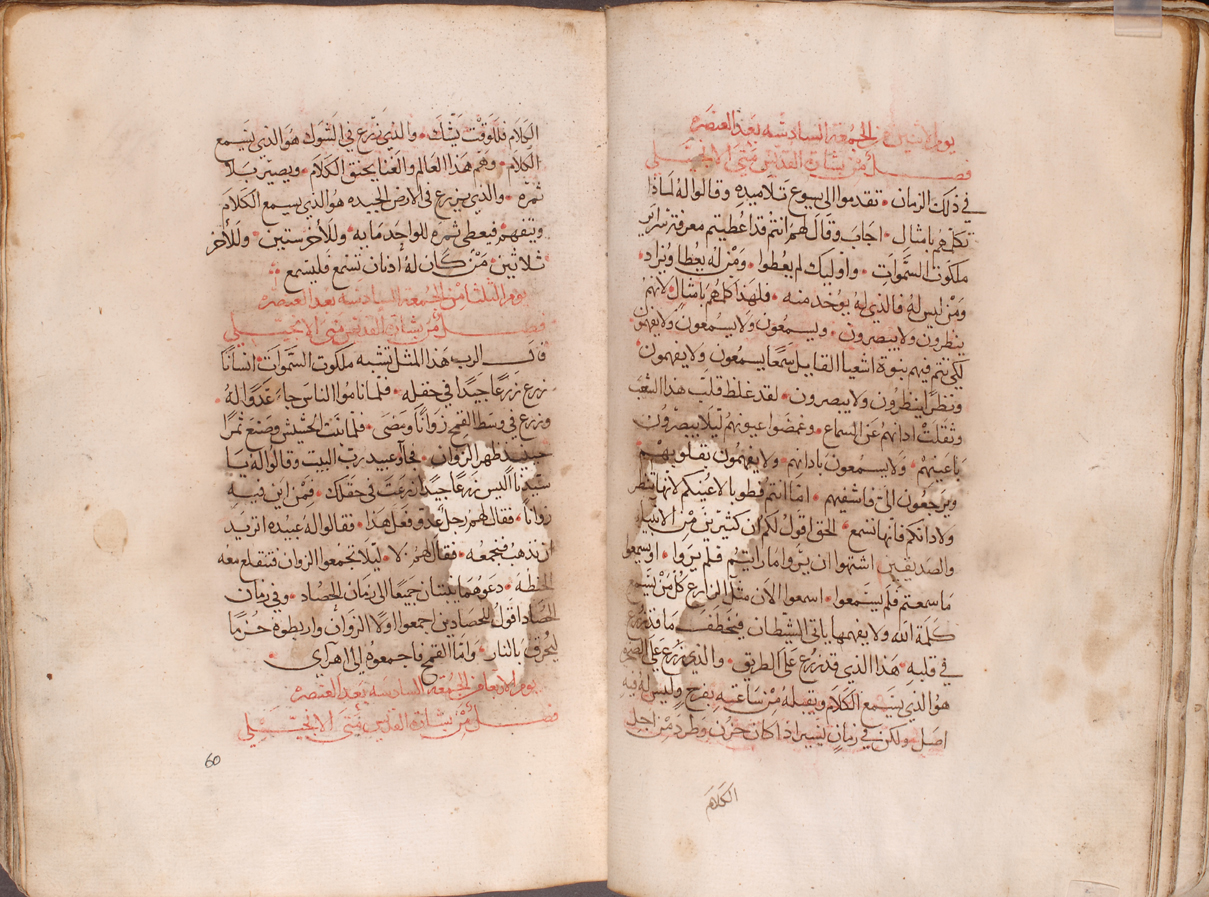 يوم الاثنين من الجمعة السادسه بعد العنصره
فصل من بشارة القديس متى الانجيلي
في ذلك الزمان • تقدموا الى يسوع تلاميده وقالوا له لماذا
تكلمهم بامثال • اجاب وقال لهم انتم قد اعطيتم معرفة سراير
ملكوت السموات • واوليك لم يعطوا • ومن له يعطا ويزاد •
ومن ليس له فالذي له يوخد منه • فلهذا كلمهم بامثال لانهم
ينظرون ولا يبصرون • ويسمعون ولا يسمعون ولا يفهمون •
لكي تتم فيهم نبوة اشعيا القايل سمعا يسمعون ولا يفهمون
ونظرا ينظرون ولا يبصرون • لقد غلظ قلب هذا الشعب
وثقلت ادانهم عن السماع • وغمضوا عيونهم ليلا يبصرون
باعينهم • ولا يسمعون بادانهم • ولا يفهمون بقلوبهم •
ويرجعون الي فاشفيهم • اما انتم فطوبا لاعينكم لانها تنظر
ولادانكم فانها تسمع • الحق اقول لكم ان كثيرين من الانبيا
والصديقين اشتهوا ان يروا ما رايتم فلم يروا • او يسمعوا
ما سمعتم فلم يسمعوا • اسمعوا الان مثل الزارع كل من يسمع
كلمة الله ولا يفهمها ياتي الشيطان فيخطف ما قد زرع
في قلبه • هذا الذي قد زرع على الطريق • والذي زرع على الصخر
هو الذي يسمع الكلام ويقبله من ساعته بفرح وليس له فيه
اصل ولكن في زمان يسير اذا كان حزن وطرد من اجل
الكلام
الكلام فللوقت يشك • والذي زرع في الشوك هو الذي يسمع
الكلام • وهم هذا العالم والغنا يخنق الكلام • ويصير بلا
ثمره • والذي زرع في الارض الجيده هو الذي يسمع الكلام
ويتفهم فيعطي ثمره للواحد مايه وللاخر ستين • وللاخر
ثلاثين • من كان له أدنان تسمع فليسمع
يوم الثلثا من الجمعة السادسه بعد العنصره
فصل من بشارة القديس متى الانجيلي
قال الرب هذا المثل تشبه ملكوت السموات • انسانا
زرع زرعا جيدا في حقله • فلما ناموا الناس جاء عدوا له •
وزرع في وسط القمح زوانا ومضى • فلما نبت الحشيش وصنع ثمرا
حينيد ظهر الزوان • فجاو عبيد رب البيت وقالوا له يا
سيدنا اليس زرعا جيدا زرعت في حقلك • فمن اين فيه
زوانا • فقال لهم رجل عدو فعل هذا • فقالوا له عبيده اتريد
ان ندهب فنجمعه • فقال لهم لا • ليلا تجمعوا الزوان فتنقلع معه
الحنطه • دعوهما ينبتان جميعا الى زمان الحصاد • وفي زمان
الحصاد اقول للحصادين اجمعوا اولا الزوان واربطوه حزما
ليحرق بالنار • واما القمح فاجمعوه الى اهراي •
يوم الاربعا من الجمعة السادسه بعد العنصره
فصل من بشارة القديس متى الانجيلي
60